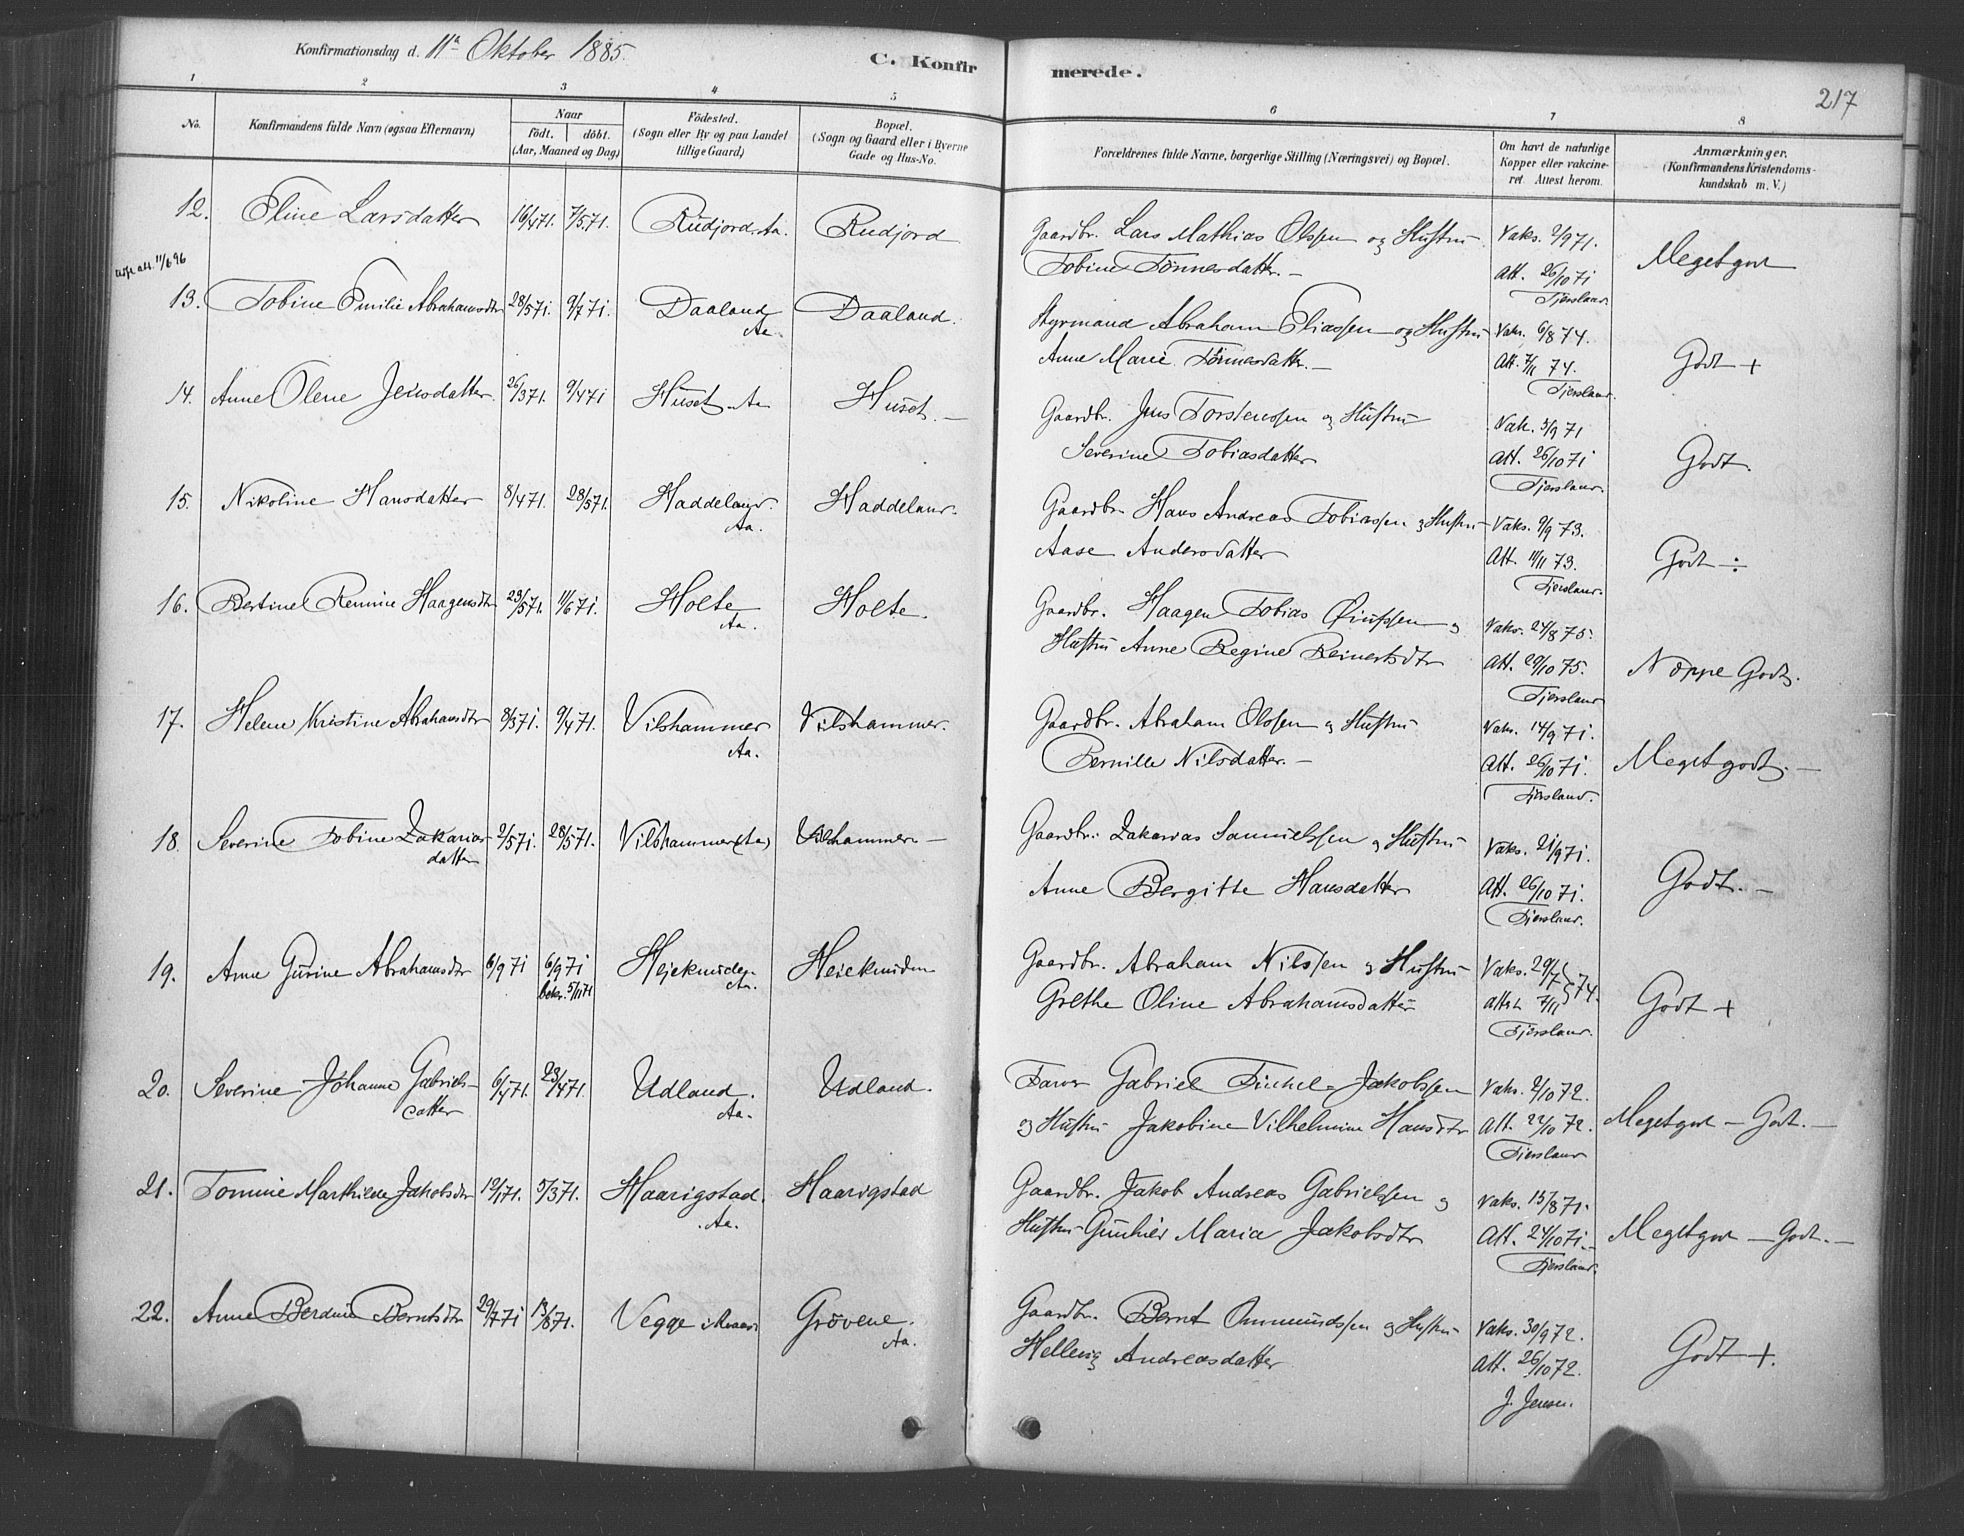 Konfirmationsdag d. 11te Oktober 1885.
C. Konfirmerede.
217
1 2 3 4 5 6 7 8
No.
Konfirmandens fulde Navn (ogsaa Efternavn)
Naar
födt. döbt.
(Aar, Maaned og Dag)
Födested.
(Sogn eller By og paa Landet
tillige Gaard)
Bopæl.
(Sogn og Gaard eller i Byerne
Gade og Hus-No.
Forældrenes fulde Navne, borgerlige Stilling (Næringsvei) og Bopæl.
Om havt de naturlige
Kopper eller vakcine-
ret. Attest herom.
Anmærkninger.
(Konfirmandens Kristendoms-
kundskab m. V.)
12. Eline Larsdatter 16/4 71. 7/5 71. Rudjord. Aa. Rudjord Gaardbr. Lars Mathias Olssen og Hustru Vaks. 2/9 71. Megetgodt
Tobine Tönnesdatter. — Att. 26/10 71
Fjersland.
att. 11/6 96
13. Tobine Emilie Abrahamsdtr 28/5 71. 9/7 71. Daaland Daaland. Styrmand Abraham Eliassen og Hustru Vaks. 6/8 74. Godt +
Aa. Anne Marie Tönnesdatter. — Att. 7/11 74.
Fjersland
14. Anne Olene Jensdatter. 26/3 71. 9/4 71 Huset. Aa Huset. — Gaardbr. Jens Torstenssen og Hustru Vak. 3/9 71 Godt.
Severine Tobiasdatter Att. 26/10 71
Fjersland.
15. Nikoline Hansdatter 8/4 71. 28/5 71. Haddeland. Haddeland. Gaardbr. Hans Andreas Tobiassen og Hustru Vaks. 9/9 73. Godt ÷
Aa. Aase Andersdatter Att. 11/11 73.
Fjersland.
16. Bertine Remine Haagensdtr 29/5 71. 11/6 71. Holte Holte. Gaardbr. Haagen Tobias og Vaks. 24/8 75. Neppe Godt.
Aa. Hustru Anne Regine Reinertsdtr Att. 20/10 75.
Fjersland
17. Helene Kristine Abrahamsdtr 8/3 71. 9/4 71. Vilshammer Vilshammer. Gaardbr. Abraham Olssen og Hustru Vaks. 14/9 71. Megetgodt. —
Aa. Pernille Nilsdatter. — Att. 26/10 71.
Fjersland.
18. Severine Tobine Zakarias 2/5 71. 28/5 71. Vilshammer (Aa) Vilshammer — Gaardbr. Zakarias Samuelssen og Hustru Vaks. 21/9 71. Godt. —
datter Anne Bergitte Hansdatter Att. 26/10 71.
Fjersland.
19. Anne Gurine Abrahamsdtr 6/9 71 6/9 71 Heieknuden Heieknuden Gaardbr. Abraham Nilssen og Hustru Vaks. 29/7 } 74. Godt +
bekr. 5/11 71 Aa. Grethe Oline Abrahamsdatter Attest 7/11
Fjersland.
20. Severine Johanne Gabriels- 6/4 71. 23/4 71. Udland. Udland. Farver Gabriel Jakobssen Vaks. 2/10 72. Megetgodt — Godt. —
datter Aa. og Hustru Jakobine Vilhelmine Hansdtr Att. 22/10 72.
Fjersland
21. Tomine Marthilde Jakobsdtr 19/1 71. 5/3 71. Haarigstad. Haarigstad Gaardbr. Jakob Andreas Gabrielssen og Vaks. 15/8 71. Megetgodt — Godt. —
Aa. Hustru Gunhild Maria Jakobsdtr Att. 24/10 71. —
Fjersland.
22. Anne Berdine Berntsdtr 29/7 71 13/8 71. Vegge i Grövene. Gaardbr. Bernt Ommundssen og Hustru Vaks. 30/9 72. Godt +.
Aa. Hellevig Andreasdatter Att. 26/10 72.
J. Jensen.